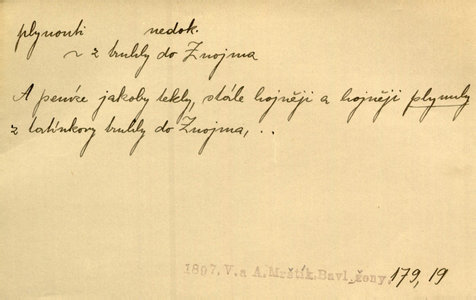 plynouti nedok.
~ z truhly do Znojma
A peníze jakoby tekly, stále hojněji a hojněji plynuly
z tatínkovy truhly do Znojma, ..
1897. V. a A. Mrštík. Bavl. ženy 179, 19